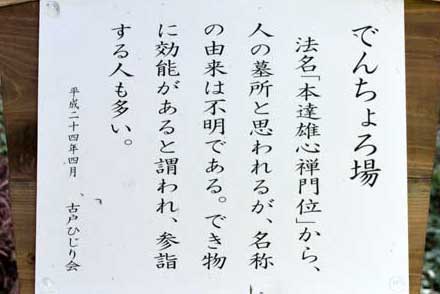 でんちょろ場
法名「本達雄心禅門位」から、
人の墓所と思われるが、名称
の由来は不明である。でき物
に効能があると謂われ、参詣
する人も多い。
平成二十四年四月
古戸ひじり会